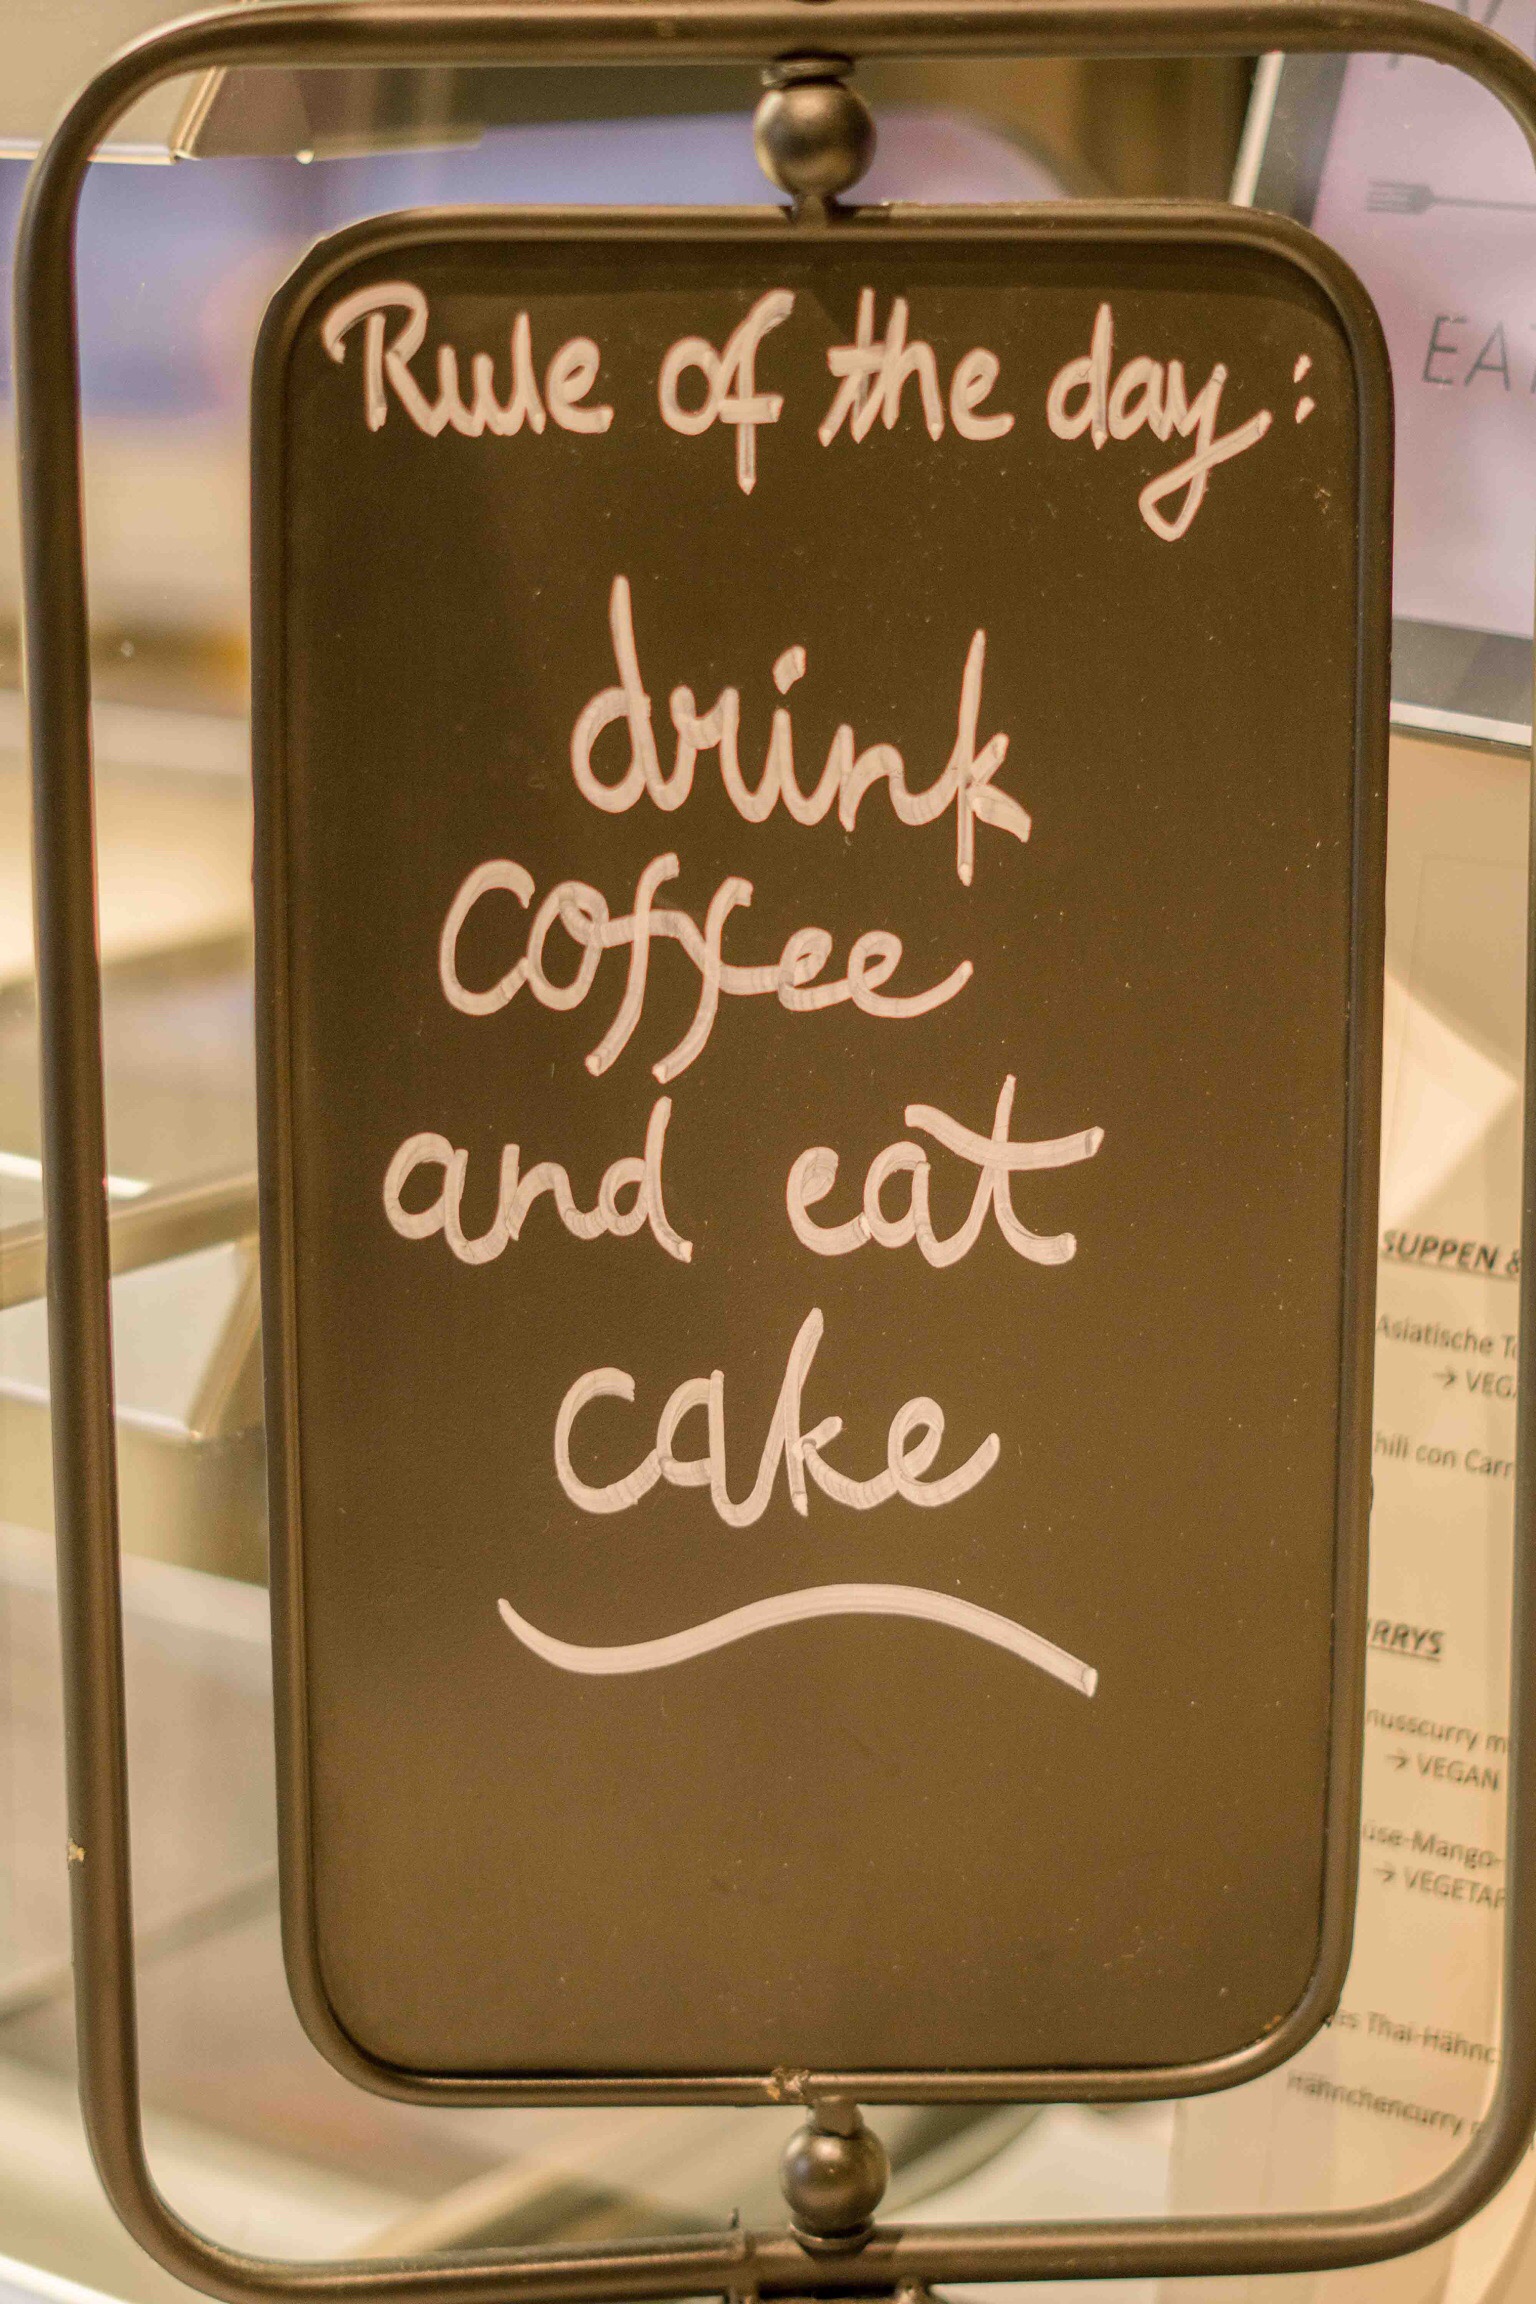 Rule of the day:
drink
coffee
and eat
cake
SUPPEN &
Asiatische
→ VEGA
hili con Carn
RRYS
nusscurry m
→ VEGAN
üse-Mango-
→ VEGETAR
es Thai-Hähnc
Hähnchencurry
EAT